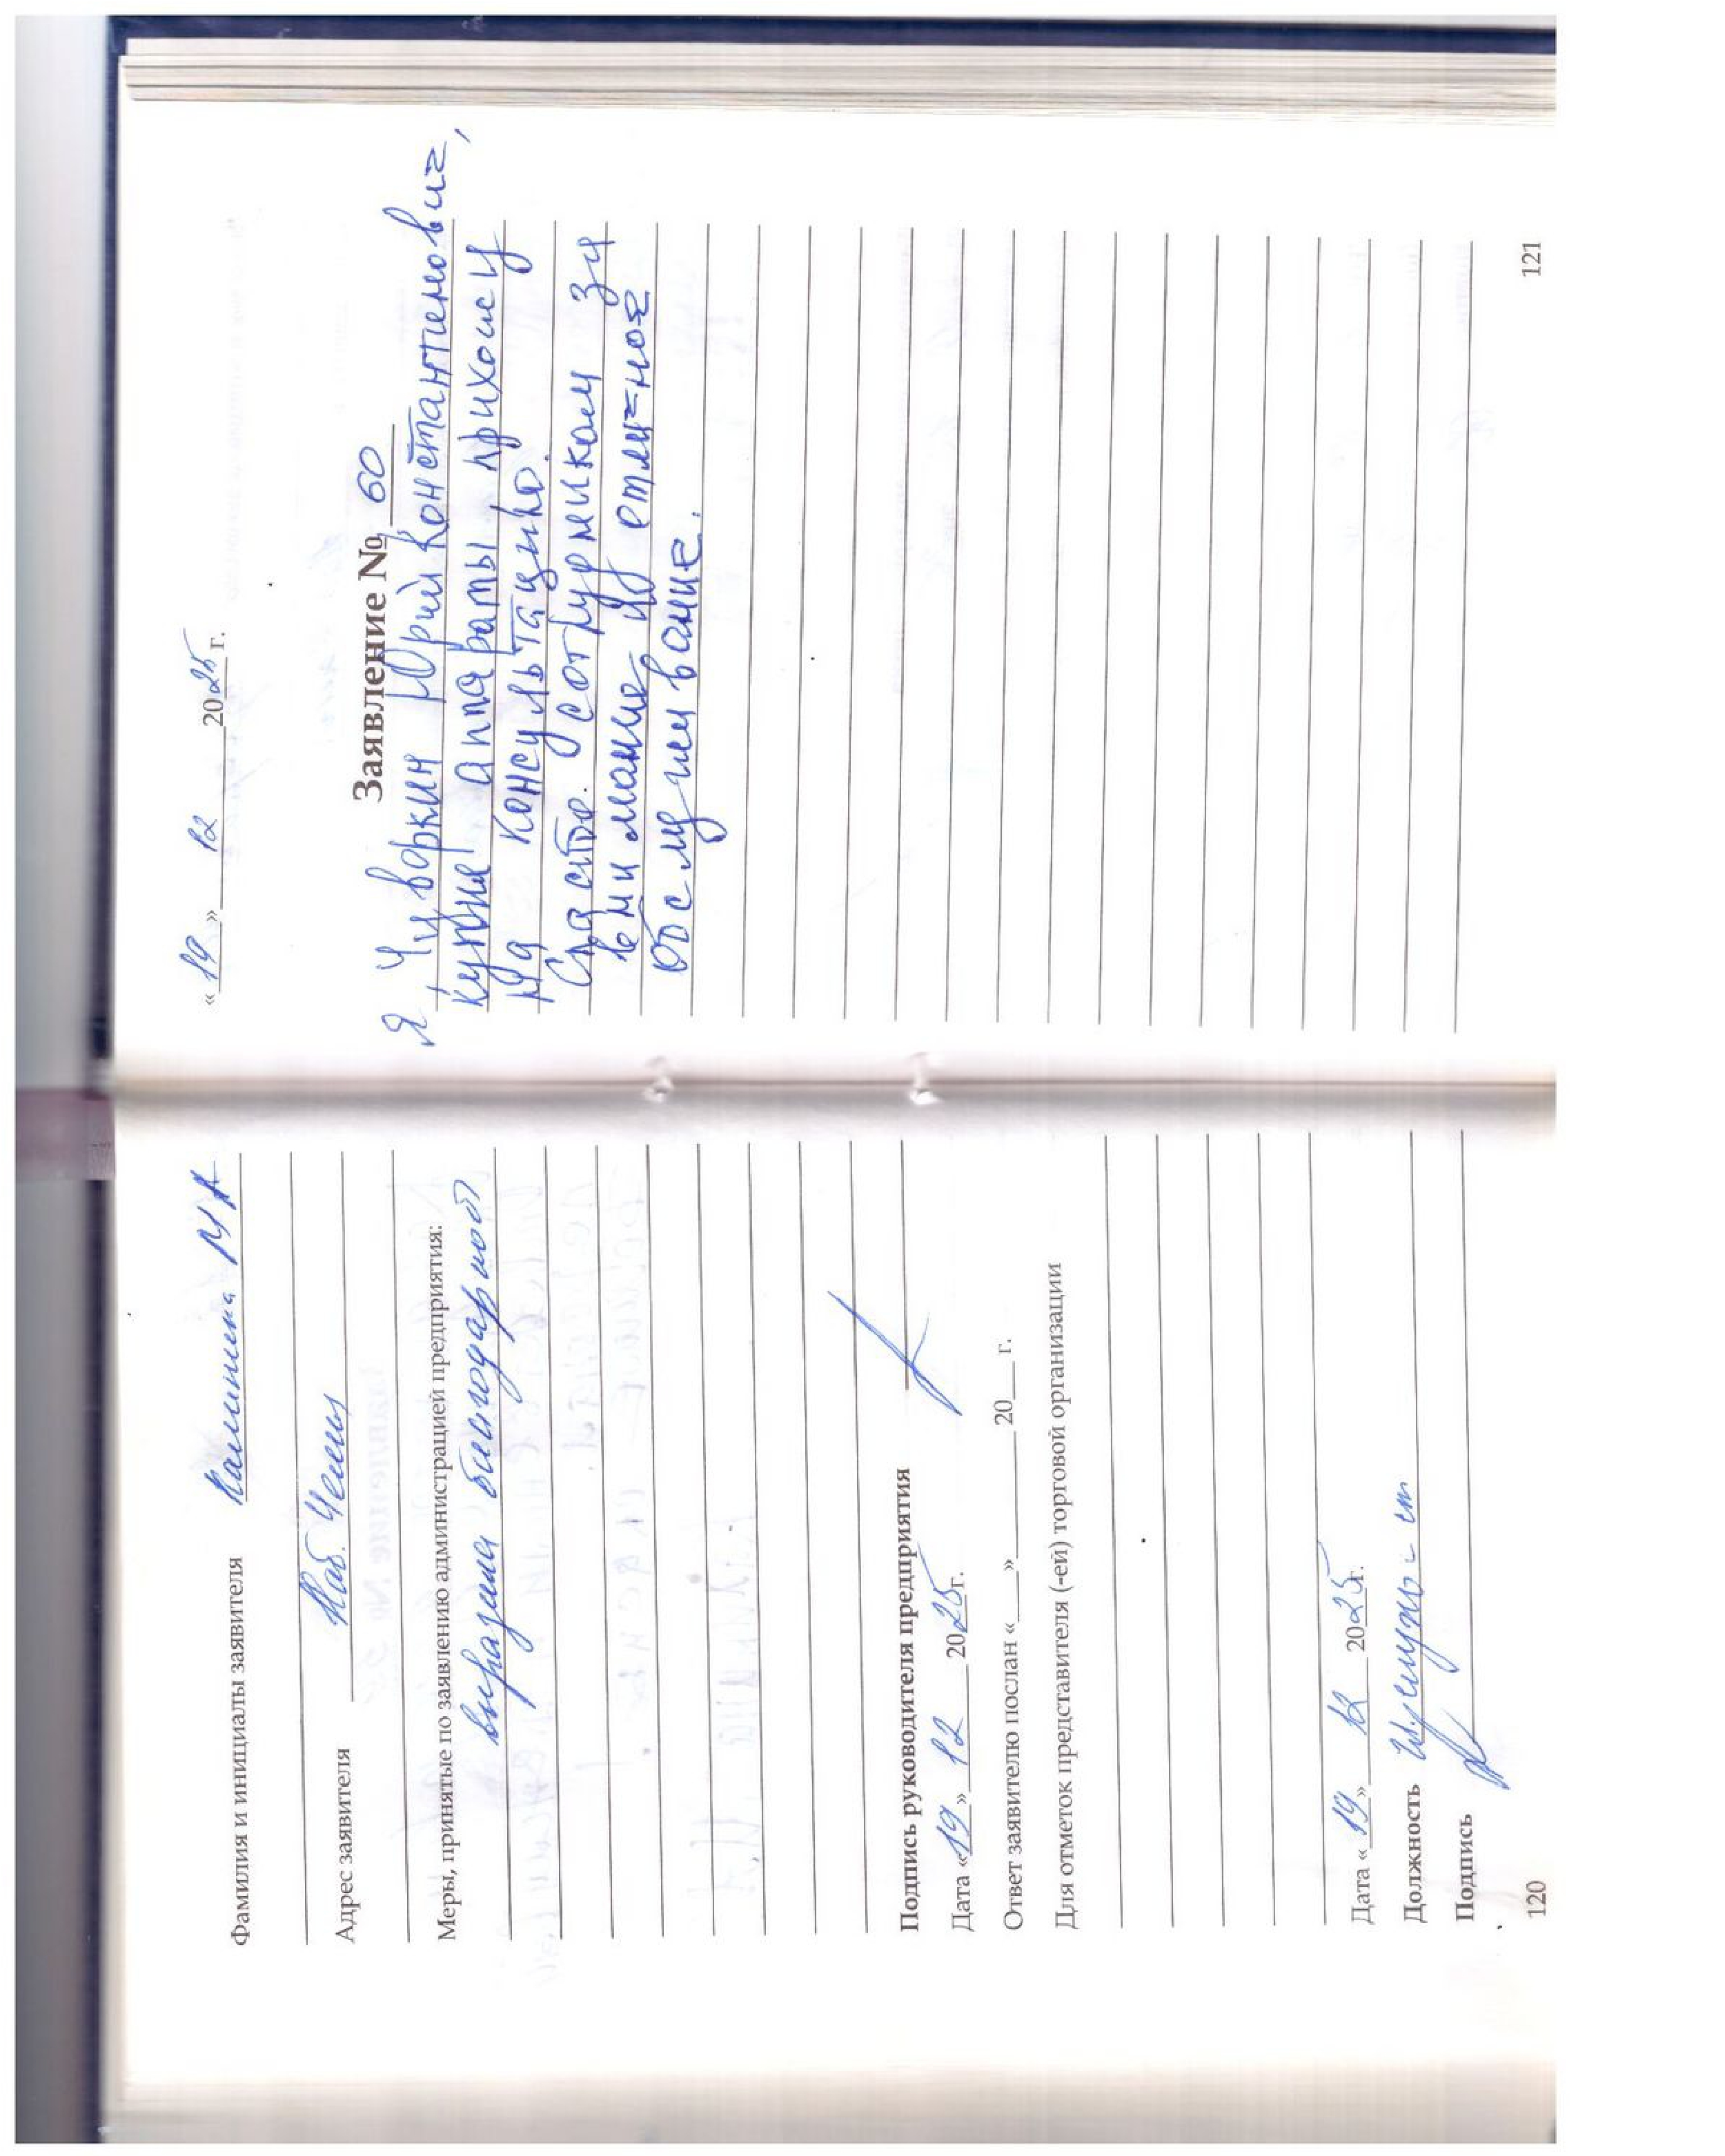 Фамилия и инициалы заявителя Калинина М А
Адрес заявителя Наб. Челны
Меры, принятые по заявлению администрацией предприятия:
выразила благодарность
Подпись руководителя предприятия
Дата «19» 12 2025г.
Ответ заявителю послан «___»________ 20___ г.
Для отметок представителя (-ей) торговой организации
Дата «19» 12 2025г.
Должность
Подпись
120
«19» 12 2025 г.
Заявление № 60
Я Чуворкин Юрий Константинович,
купил аппараты прихожу
на консультацию.
Спасибо. сотрудникам за
внимание и отличное
обслуживание.
121